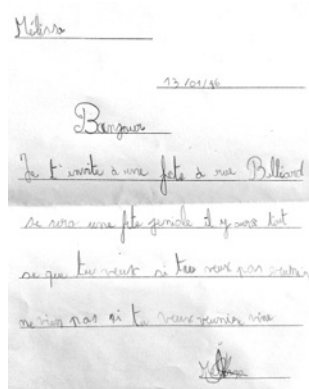 Mélissa
13/01/96
Bonjour
Je t'invite a une fete a rue Billiard
se sera une fete geniale il y aura tout
se que tu veux si tu veux pas
ne vien pas si tu veux venir vien